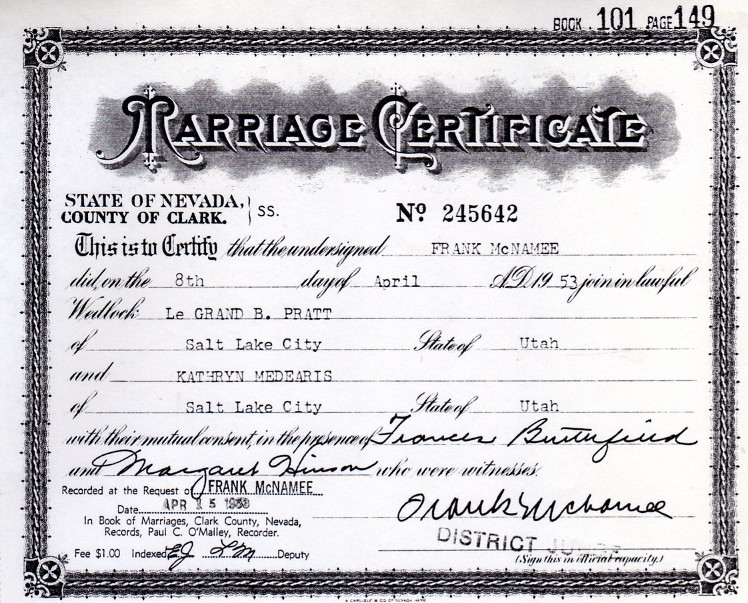 BOOK 101 PAGE 149
MARRIAGE CERTIFICATE
STATE OF NEVADA,
COUNTY OF CLARK. } SS.
No 245642
This is to Certify that the undersigned FRANK McNAMEE
did, on the 8th day of April A.D. 19 53 join in lawful
Wedlock: Le GRAND B. PRATT
of Salt Lake City State of Utah
and KATHRYN MEDEARIS
of Salt Lake City State of Utah
with their mutual consent, in the presence of Frances Butterfield
and Margaret Hinson who were witnesses.
Recorded at the Request of FRANK McNAMEE
Date APR 15 1953
In Book of Marriages, Clark County, Nevada,
Records, Paul C. O'Malley, Recorder.
Fee $1.00 Indexed EJ LM Deputy
Frank McNamee
DISTRICT JUDGE
(Sign this in official capacity.)